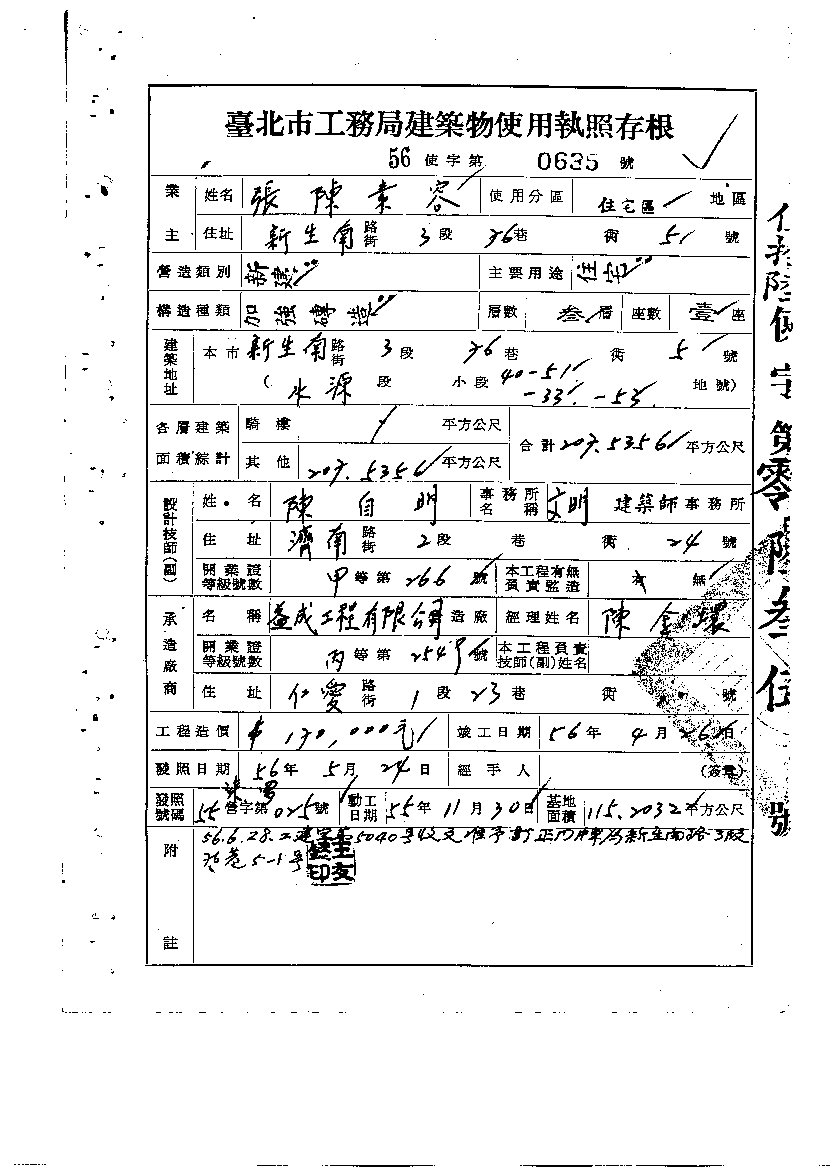 臺北市工務局建築物使用執照存根
56 使字第 0635 號
業主 姓名 張陳素容 使用分區 住宅區 地區
住址 新生南 路街 3 段 76 巷 衖 5 號
營造類別 新建 主要用途 住宅
構造種類 加強磚造 層數 叁層 座數 壹座
建築地址 本市 新生南 路街 3 段 76 巷 衖 5 號
( 水源 段 小段 40-51 -33 -53 地號)
各層建築面積綜計 騎樓 / 平方公尺 合計 207.5356 平方公尺
其他 207.5356 平方公尺
設計技師(副) 姓名 陳自明 事務所名稱 文明 建築師事務所
住址 濟南 路街 2 段 巷 衖 24 號
開業證等級號數 甲等第 266 號 本工程有無負責監造 有 無
承造廠商 名稱 益成工程有限公司 造廠 經理姓名 陳金環
開業證等級號數 丙等第 254 號 本工程負責技師(副)姓名
住址 仁愛 路街 1 段 23 巷 衖 號
工程造價 $ 170,000元 竣工日期 56 年 4 月 26 日
發照日期 56 年 5 月 24 日 經手人 (簽章)
發照號碼 55 營字第 025 號 動工日期 55 年 11 月 30 日 基地面積 115.2032 平方公尺
附註 56.6.28.工建字第5040号收文准予訂正門牌為新生南路3段
76巷5-1号